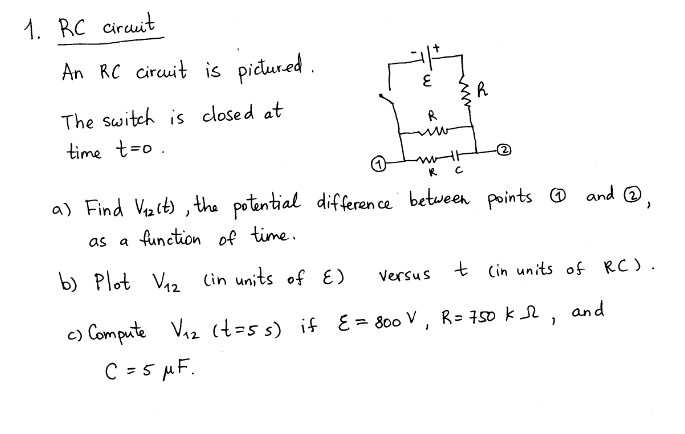 1. RC circuit
An RC circuit is pictured.
The switch is closed at
time t=0.
- +
ε
R
R
① ②
R C
a) Find V₁₂(t), the potential difference between points ① and ②,
as a function of time.
b) Plot V₁₂ (in units of ε) versus t (in units of RC).
c) Compute V₁₂ (t=5 s) if ε = 800 V, R = 750 k Ω, and
C = 5 μF.